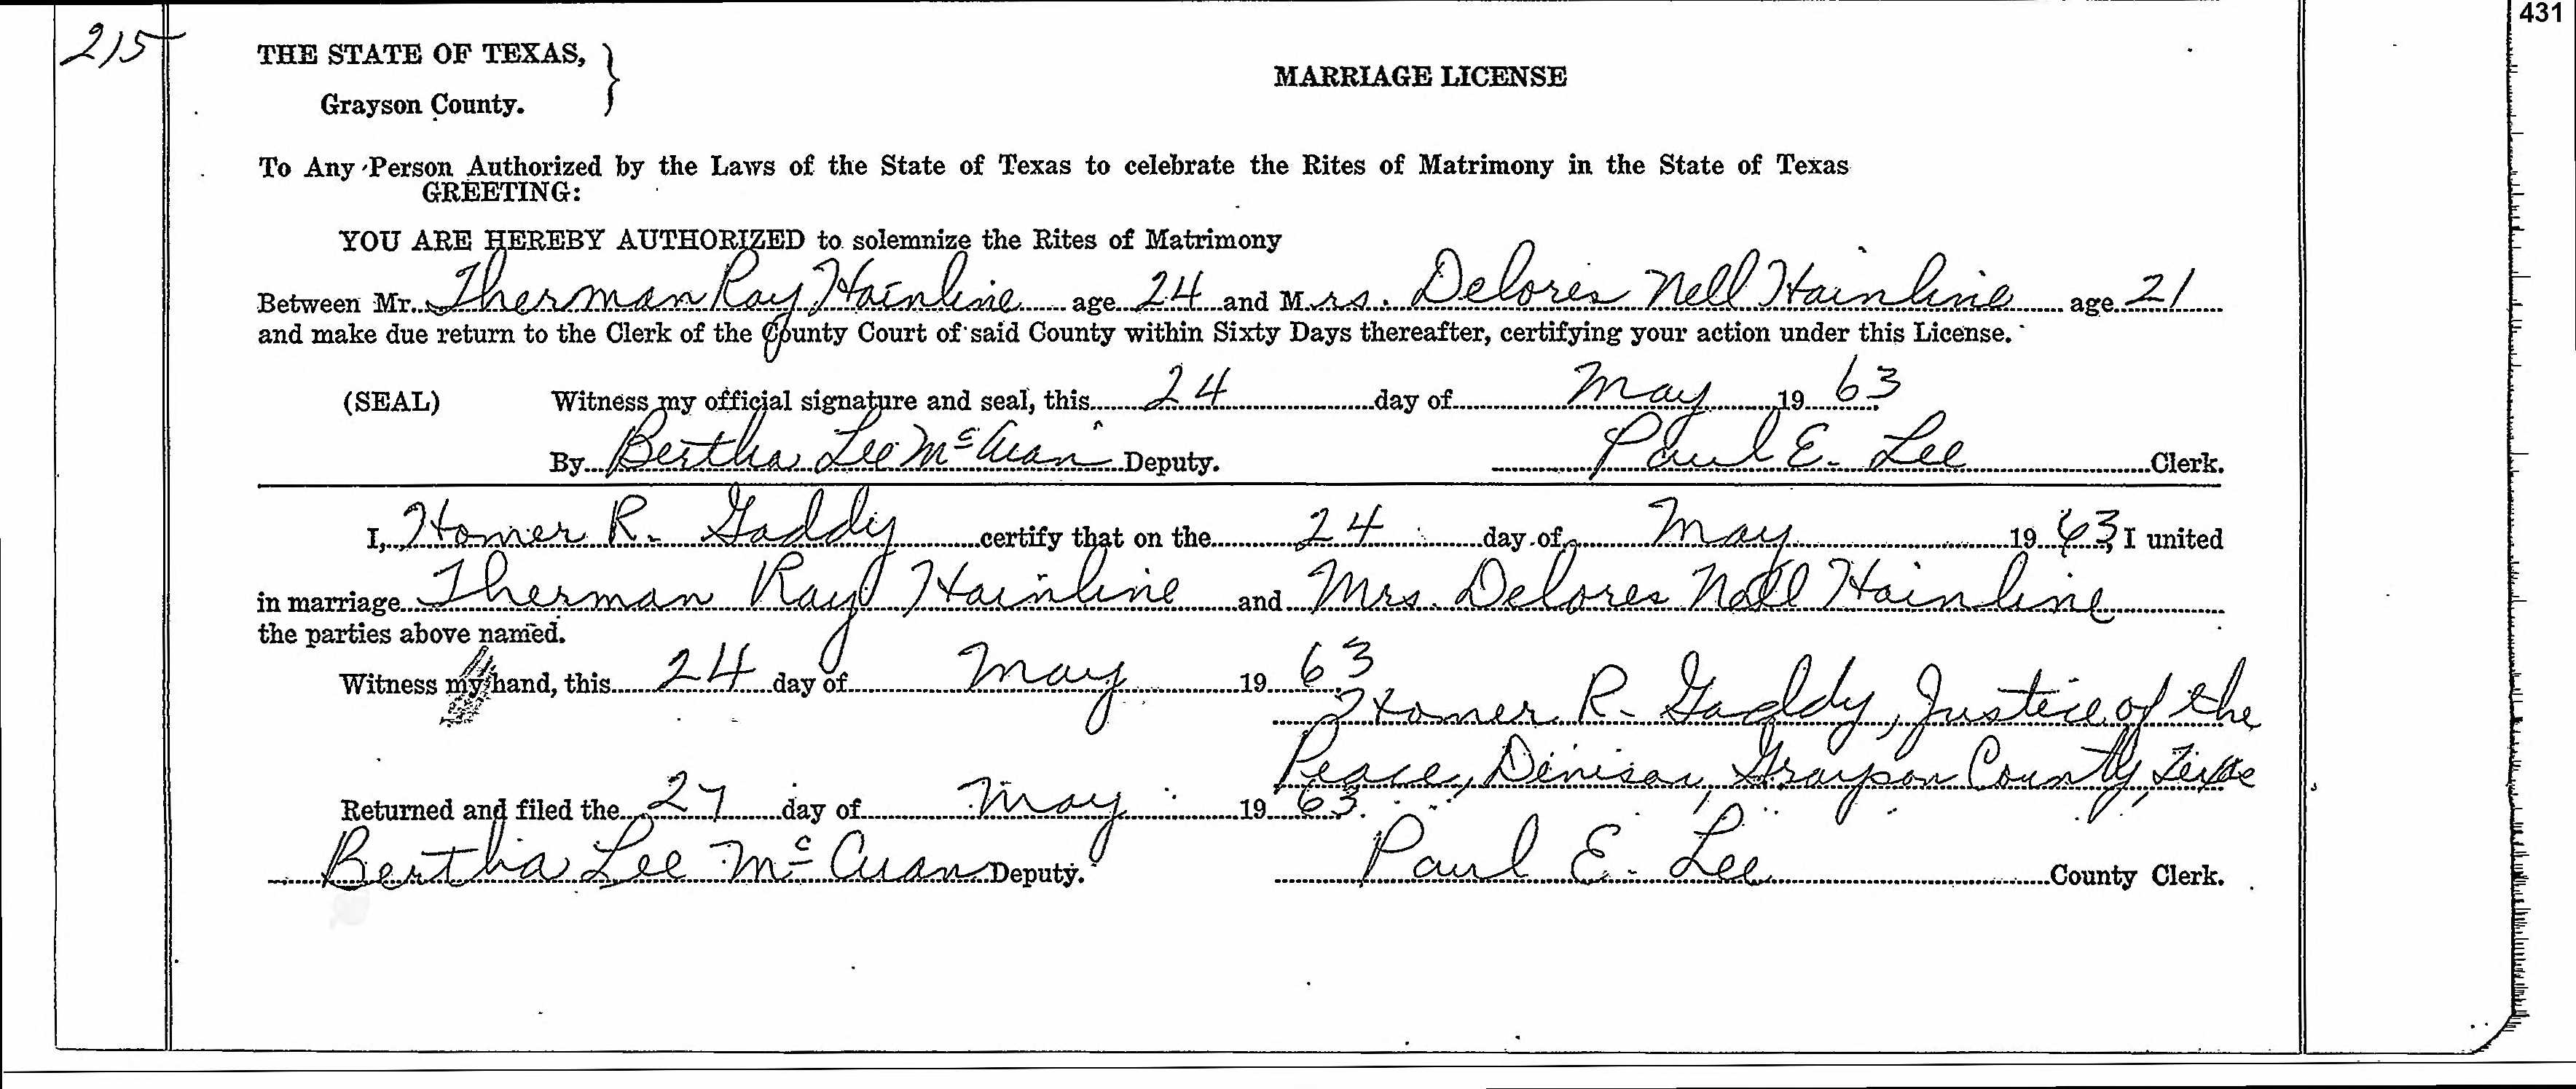 431
215
THE STATE OF TEXAS, }
Grayson County.
MARRIAGE LICENSE
To Any Person Authorized by the Laws of the State of Texas to celebrate the Rites of Matrimony in the State of Texas
GREETING:
YOU ARE HEREBY AUTHORIZED to solemnize the Rites of Matrimony
Between Mr. Therman Ray Hainline age 24 and Mrs. Delores Nell Hainline age 21
and make due return to the Clerk of the County Court of said County within Sixty Days thereafter, certifying your action under this License.
(SEAL) Witness my official signature and seal, this 24 day of May 1963
By Bertha Lee McCuan Deputy. Paul E. Lee Clerk.
I, Homer R. Gaddy certify that on the 24 day of May 1963, I united
in marriage Therman Ray Hainline and Mrs. Delores Nell Hainline
the parties above named.
Witness my hand, this 24 day of May 1963
Homer R. Gaddy, Justice of the
Peace, Denison, Grayson County, Texas
Returned and filed the 27 day of May 1963.
Bertha Lee McCuan Deputy. Paul E. Lee County Clerk.